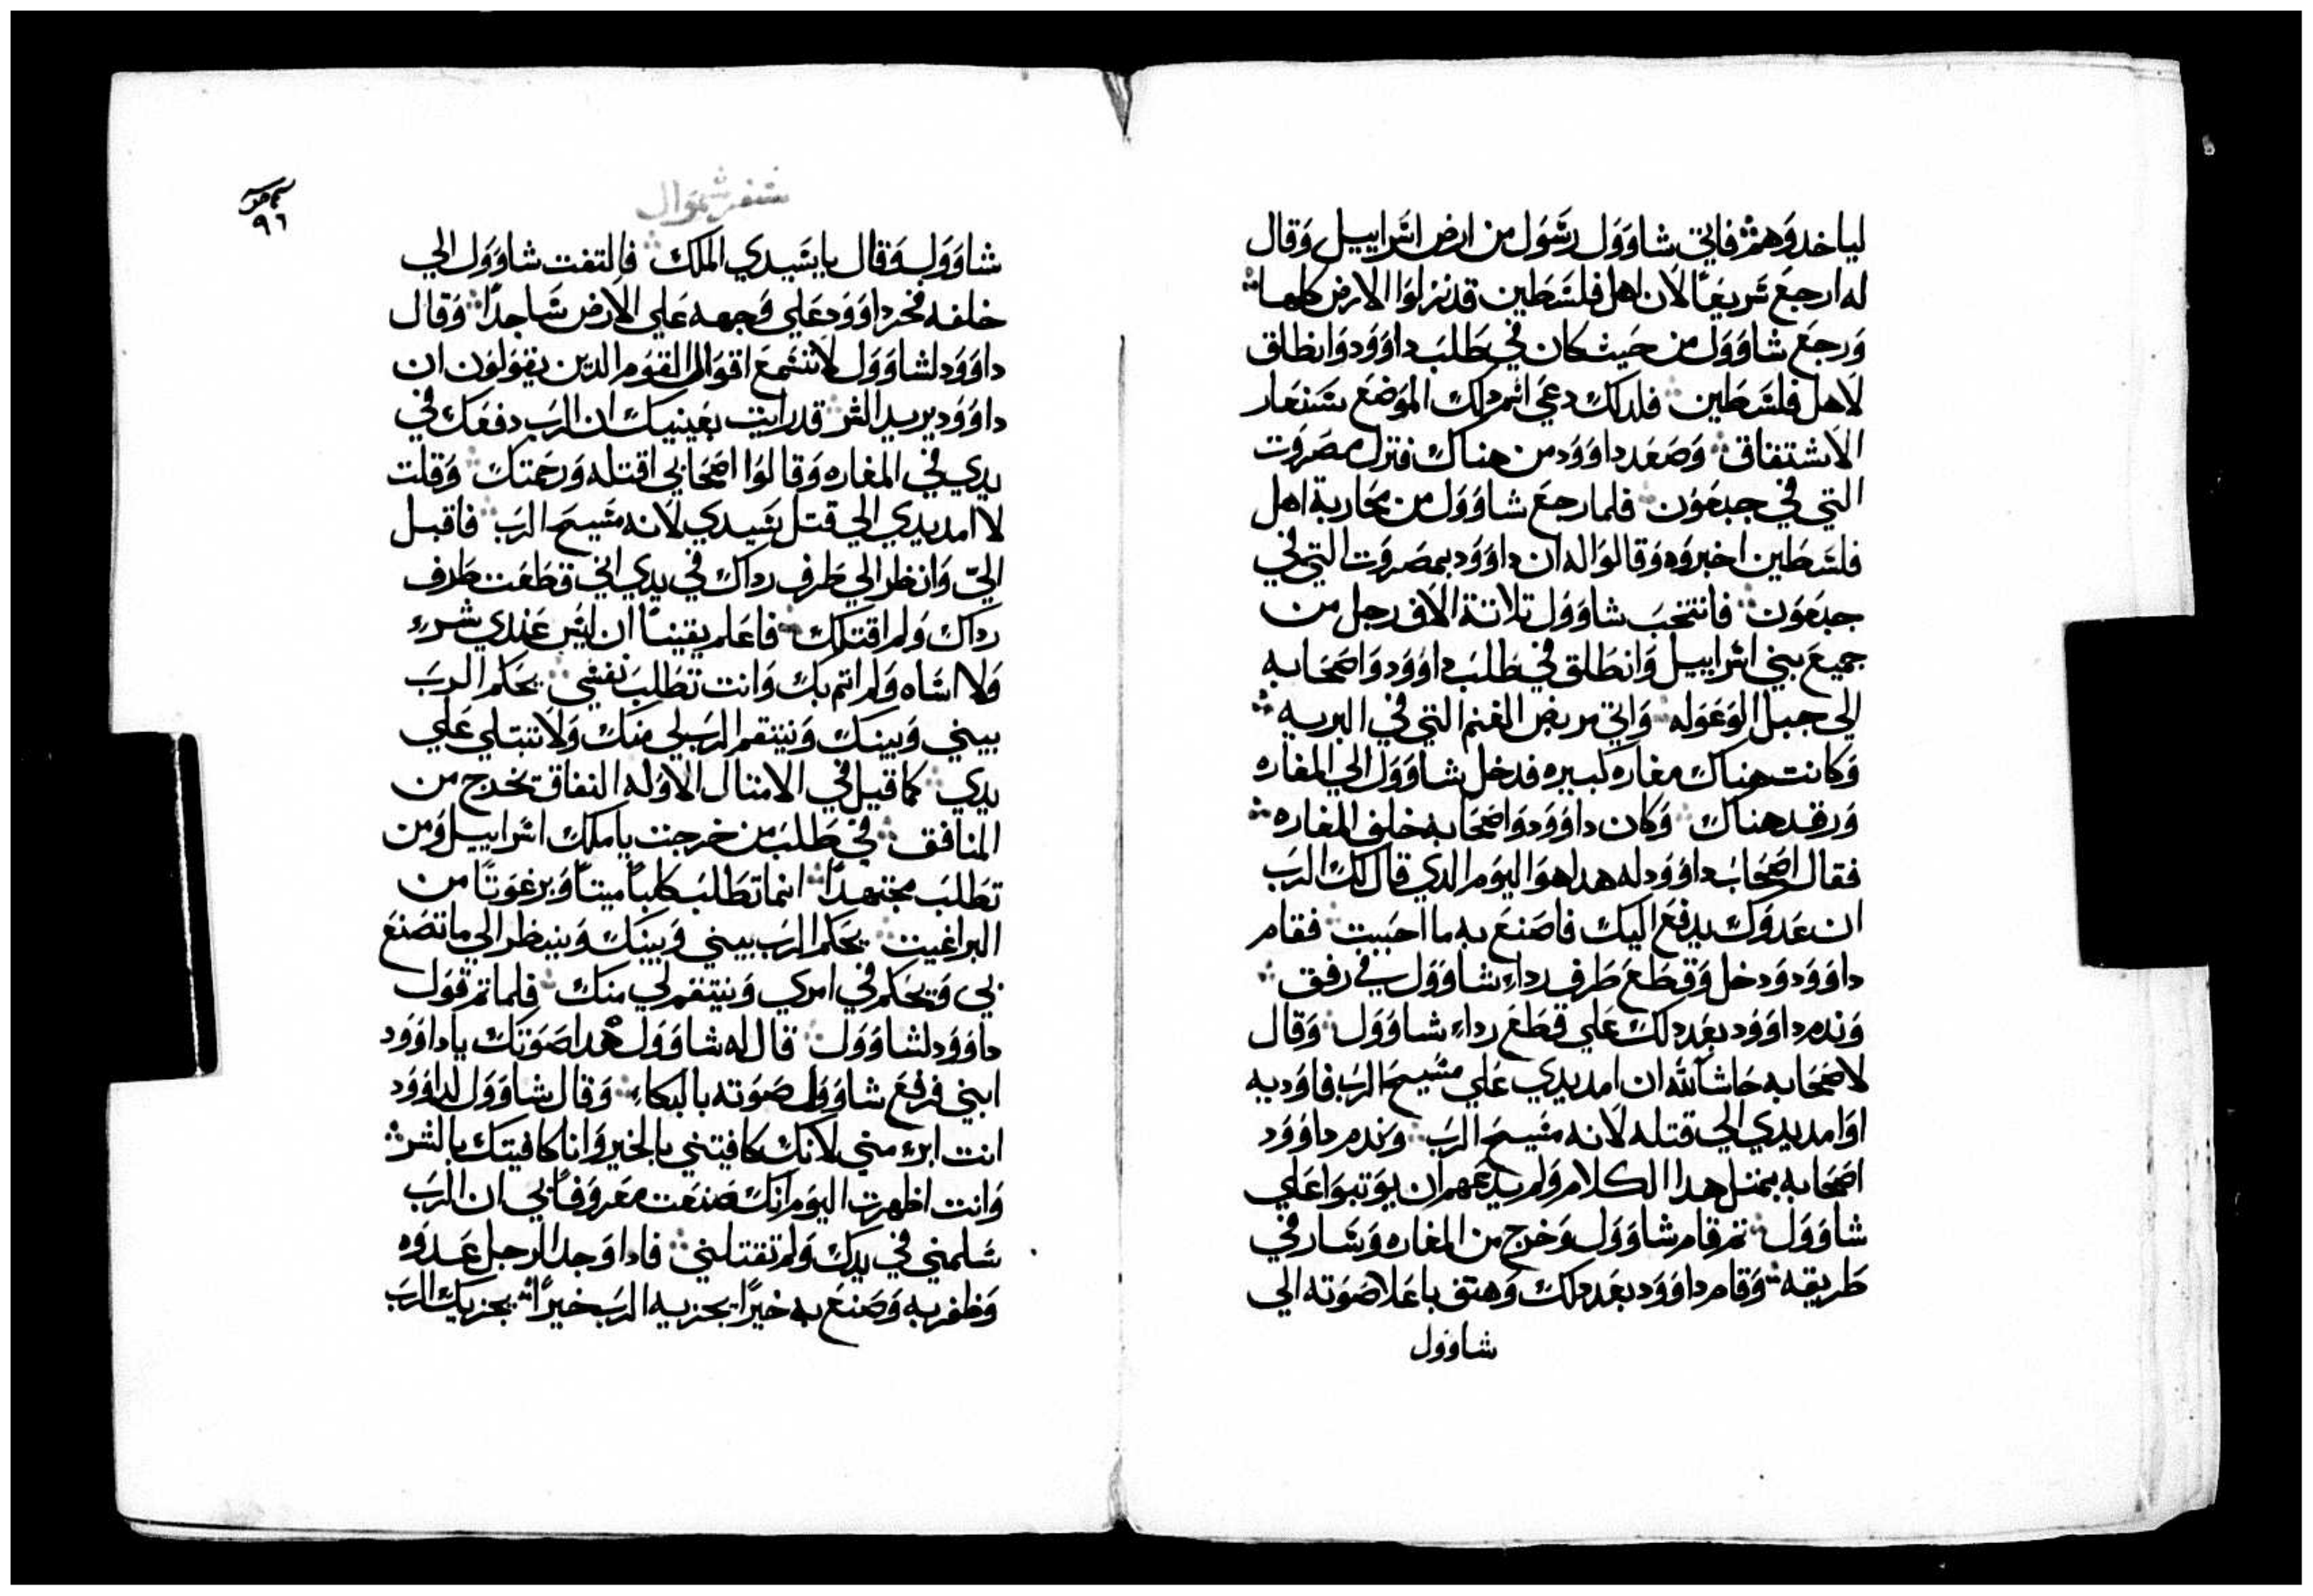 لياخدوهم فاتي شاوول رسول من ارض اسراييل وقال
له ارجع سريعًا لان اهل فلسطين قد نزلوا الارض كلها
ورجع شاوول من حيث كان في طلب داوود وانطلق
لاهل فلسطين فلدلك دعي اسم دلك الموضع شنعار
الاشتفاق وصعد داوود من هناك فنزل مصروت
التي في جبعون فلما رجع شاوول من محاربة اهل
فلسطين اخبروه وقالوا له ان داوود بمصروت التي في
جبعون فانتخب شاوول تلاتة الاف رجل من
جميع بني اسراييل وانطلق في طلب داوود واصحابه
الي جبل الوعوله واتي مربض الغنم التي في البريه
وكانت هناك مغاره كبيره فدخل شاوول الي المغاره
ورقد هناك وكان داوود واصحابه خلف المغاره
فقال اصحاب داوود له هدا هو اليوم الدي قال لك الرب
ان عدوك يدفع اليك فاصنع به ما احببت فقام
داوود ودخل وقطع طرف رداء شاوول في رفق
وندم داوود بعد دلك علي قطع رداء شاوول وقال
لاصحابه حاشا لله ان امد يدي علي مسيح الرب فاوديه
او امد يدي الي قتله لانه مسيح الرب وندم داوود
اصحابه بمتل هدا الكلام ولم يدعهم ان يوتبوا علي
شاوول تم قام شاوول وخرج من المغاره وسار في
طريقه وقام داوود بعد دلك وهتف باعلا صوته الي
شاوول
سفر شموال
٩٦
شاوول وقال يا سيدي الملك فالتفت شاوول الي
خلفه فخر داوود علي وجهه علي الارض ساجدًا وقال
داوود لشاوول لا تسمع اقوال القوم الدين يقولون ان
داوود يريد الشر قد رايت بعينيك ان الرب دفعك في
يدي في المغاره وقالوا اصحابي اقتله ورحمتك وقلت
لا امد يدي الي قتل سيدي لانه مسيح الرب فاقبل
اليّ وانظر الي طرف رداك في يدي اني قطعت طرف
رداك ولم اقتلك فاعلم يقينًا ان ليس عندي شرء
ولا اساه ولم اتم بك وانت تطلب نفسي يحكم الرب
بيني وبينك وينتقم الرب لي منك ولا تبتلي علي
يدي كما قيل في الامتال الاوله النفاق تخرج من
المنافق في طلب من خرجت يا ملك اسراييل ومن
تطلب مجتهدًا انما تطلب كلبًا ميتًا وبرغوتًا من
البراغيت يحكم الرب بيني وبينك وينظر الي ما تصنع
بي ويحكم في امري وينتقم لي منك فلما تم قول
داوود لشاوول قال له شاوول هدا صوتك يا داوود
ابني فرفع شاوول صوته بالبكاء وقال شاوول لداوود
انت ابرء مني لانك كافيتني بالخير وانا كافيتك بالشر
وانت اظهرت اليوم انك صنعت معروفًا بي ان الرب
سلمني في يدك ولم تقتلني فادا وجد الرجل عدوه
وظفر به وصنع به خيرًا يجزيه الرب خيرًا يجزيك الرب